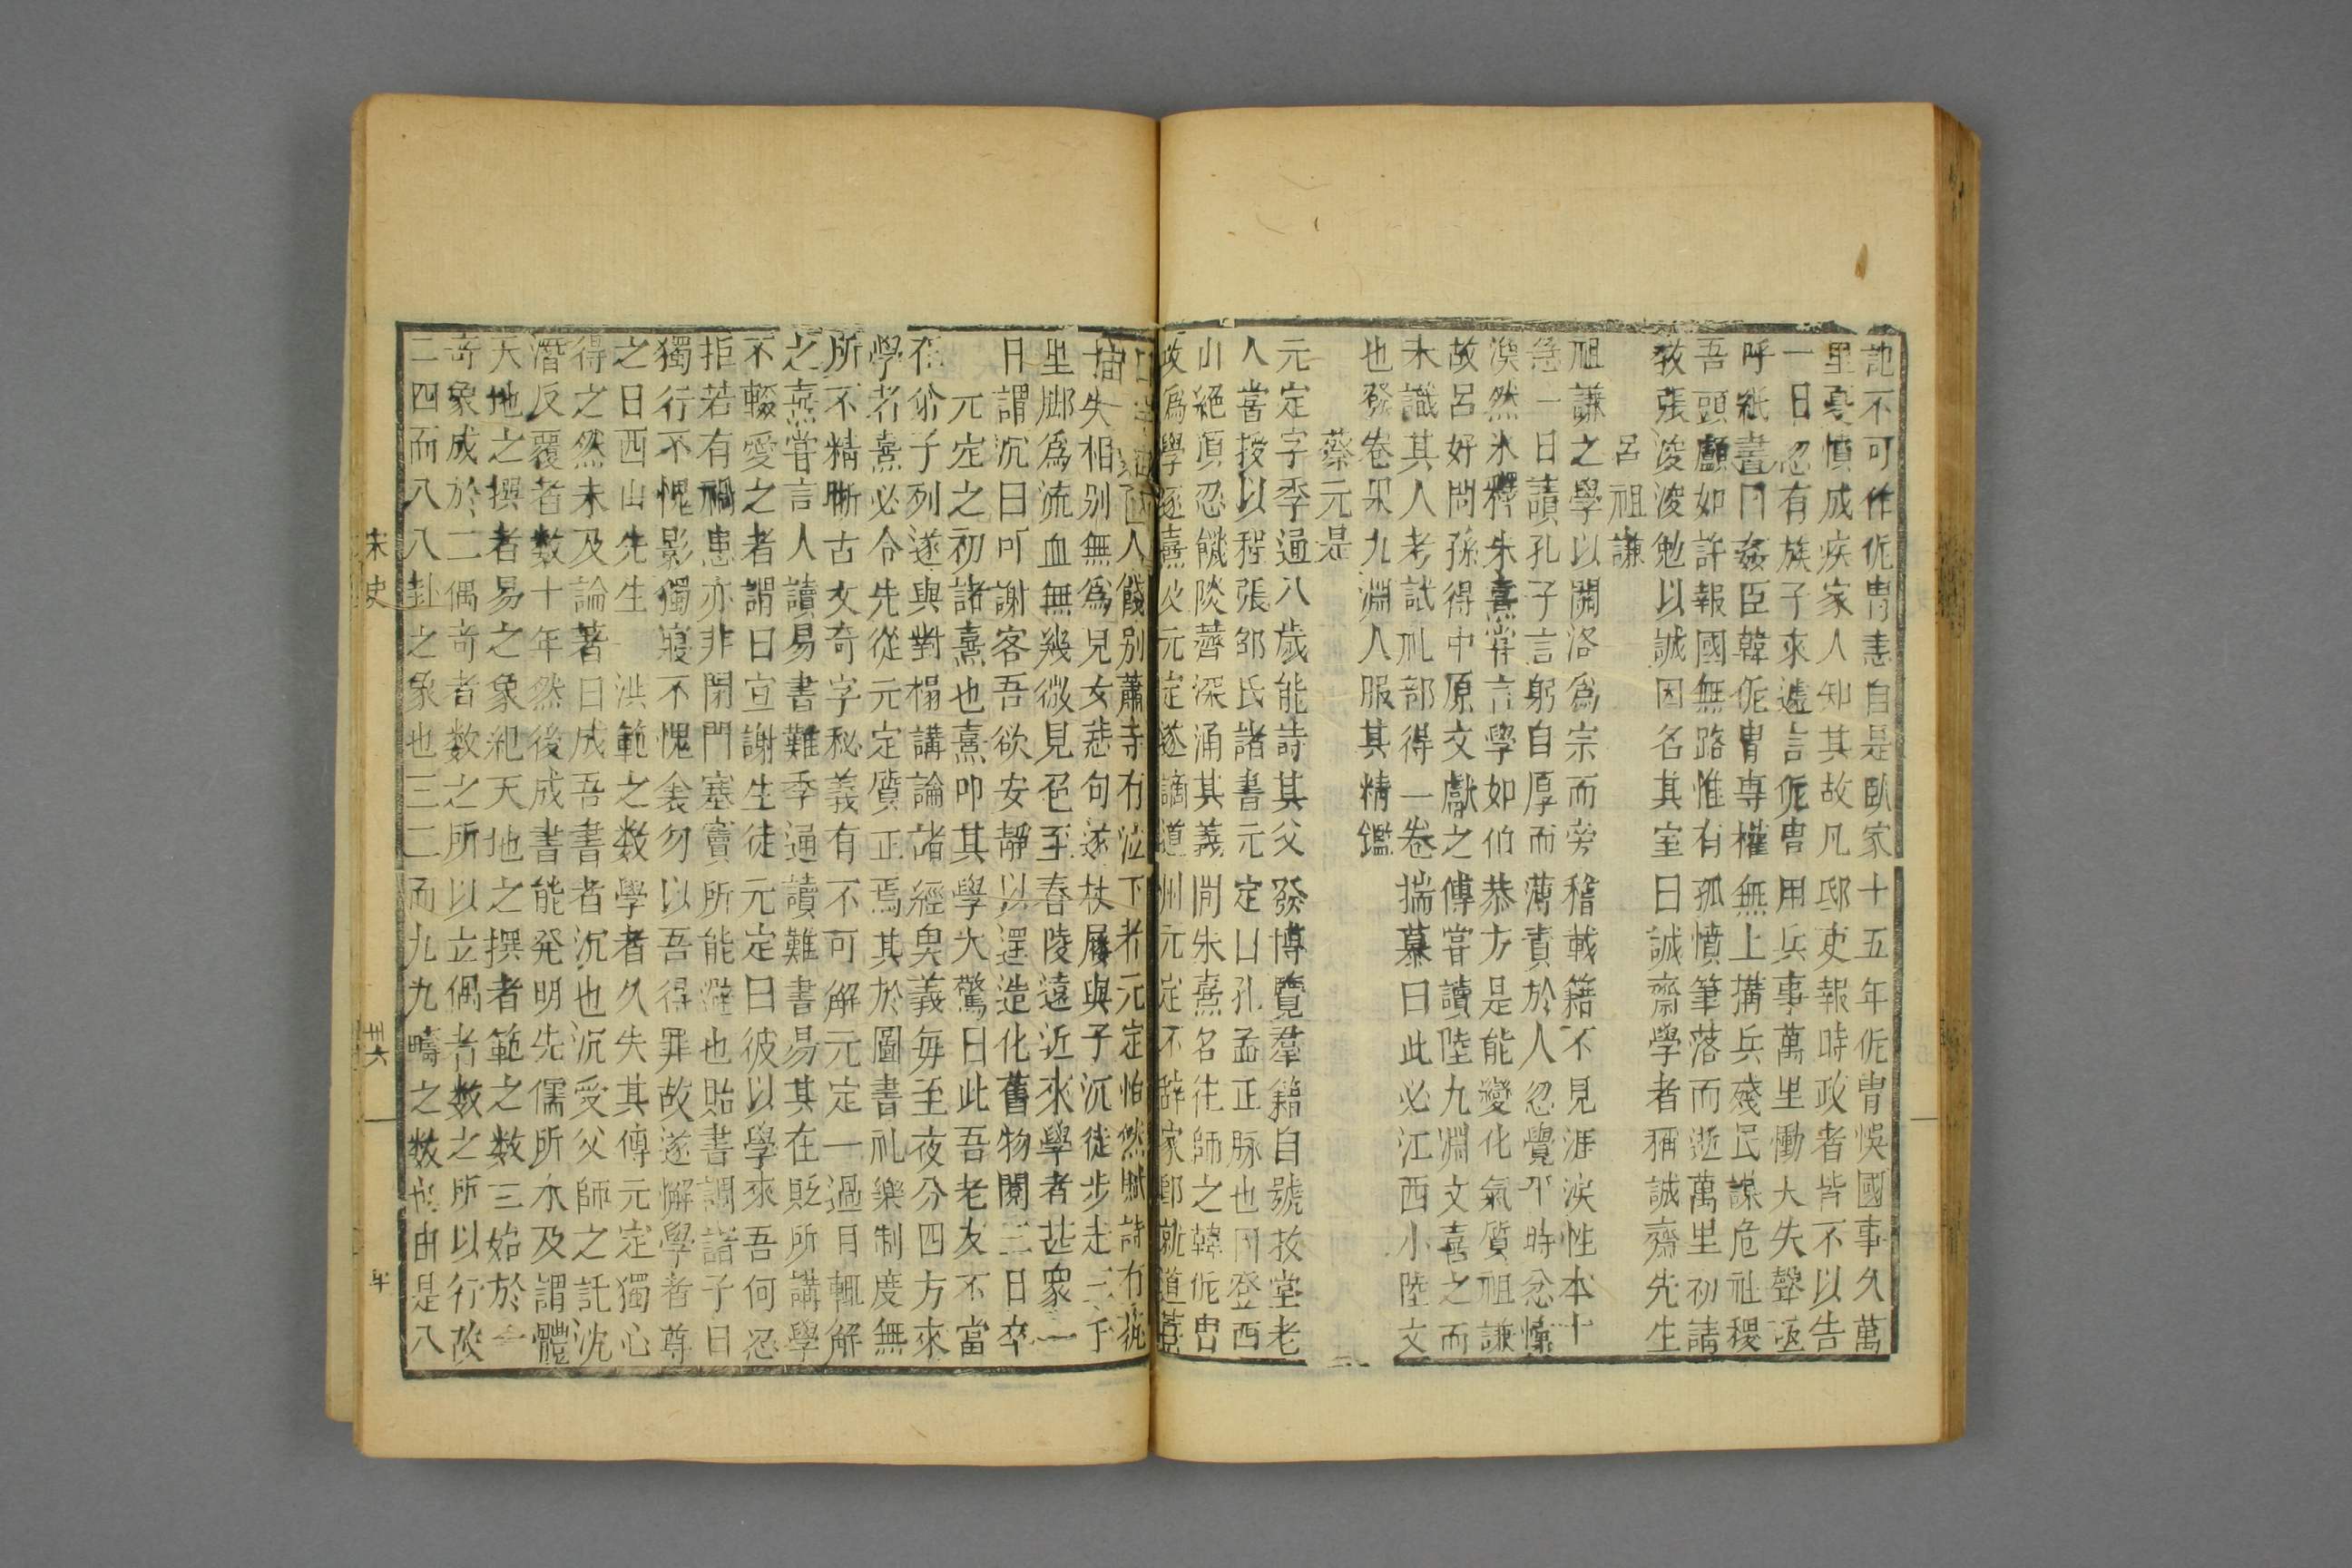 記不可作侂胄恚自是臥家十五年侂胄悞國事久萬
里憂憤成疾家人知其故凡邸吏報時政者皆不以告
一日忽有族子來遽言侂冑用兵事萬里慟大失聲亟
呼紙書曰姦臣韓侂冑専權無上搆兵殘民謀危社稷
吾頭顱如許報國無路惟有孤憤筆落而逝萬里初請
敎張浚浚勉以誠因名其室曰誠齋學者稱誠齋先生
呂祖謙
祖謙之學以關洛爲宗而旁稽載籍不見涯涘性本卞
急一日讀孔子言躬自厚而薄責於人忽覺平時忿懥
渙然氷釋朱熹甞言學如伯恭方是能變化氣質祖謙
故呂好問孫得中原文獻之傳甞讀陸九淵文喜之而
未識其人考試礼部得一卷揣摹曰此必江西小陸文
也發卷果九淵人服其精鑑
蔡元㝎
元定字季通八歳能詩其父發博覽羣籍自號牧堂老
人嘗授以程張邵氏諸書元定曰孔孟正脉也因登西
山絕頂忍饑啖薺深涌其義聞朱熹名徃師之韓侂冑
政爲學逐熹及元定遂謫道州元定不辭家郵就道熹
人餞别蕭寺有泣下者元定怡然賦詩有執
手笑相别無爲兒女悲句遂杖屨與子沉徒步走三千
里脚爲流血無幾微見色至舂陵遠近來學者甚衆一
日謂沉曰可謝客吾欲安靜以還造化舊物閱三日卒
元定之初諸熹也熹叩其學大驚曰此吾老友不當
在弟子列遂與對榻講論諸經奥義每至夜分四方來
學者熹必令先從元定質正焉其於圖書礼樂制度無
所不精晰古文奇字秘義有不可解元定一過目輒解
之熹嘗言人讀易書難季通讀難書易其在貶所講學
不輟愛之者謂曰宣謝生徒元定曰彼以學來吾何忍
拒若有禍患亦非閉門塞竇所能避也貽書謂諸子曰
獨行不愧影獨寢不愧衾勿以吾得罪故遂懈學者尊
之曰西山先生　洪範之数學者久失其傳元定獨心
得之然未及論著曰成吾書者沉也沉受父師之託沈
潛反覆者數十年然後成書能発明先儒所未及謂體
天地之撰者易之象紀天地之撰者範之数三始於一
奇象成於二偶奇者数之所以立偶者数之所以行故
二四而八八卦之象也三三而九九疇之数也由是八
宋史
五六